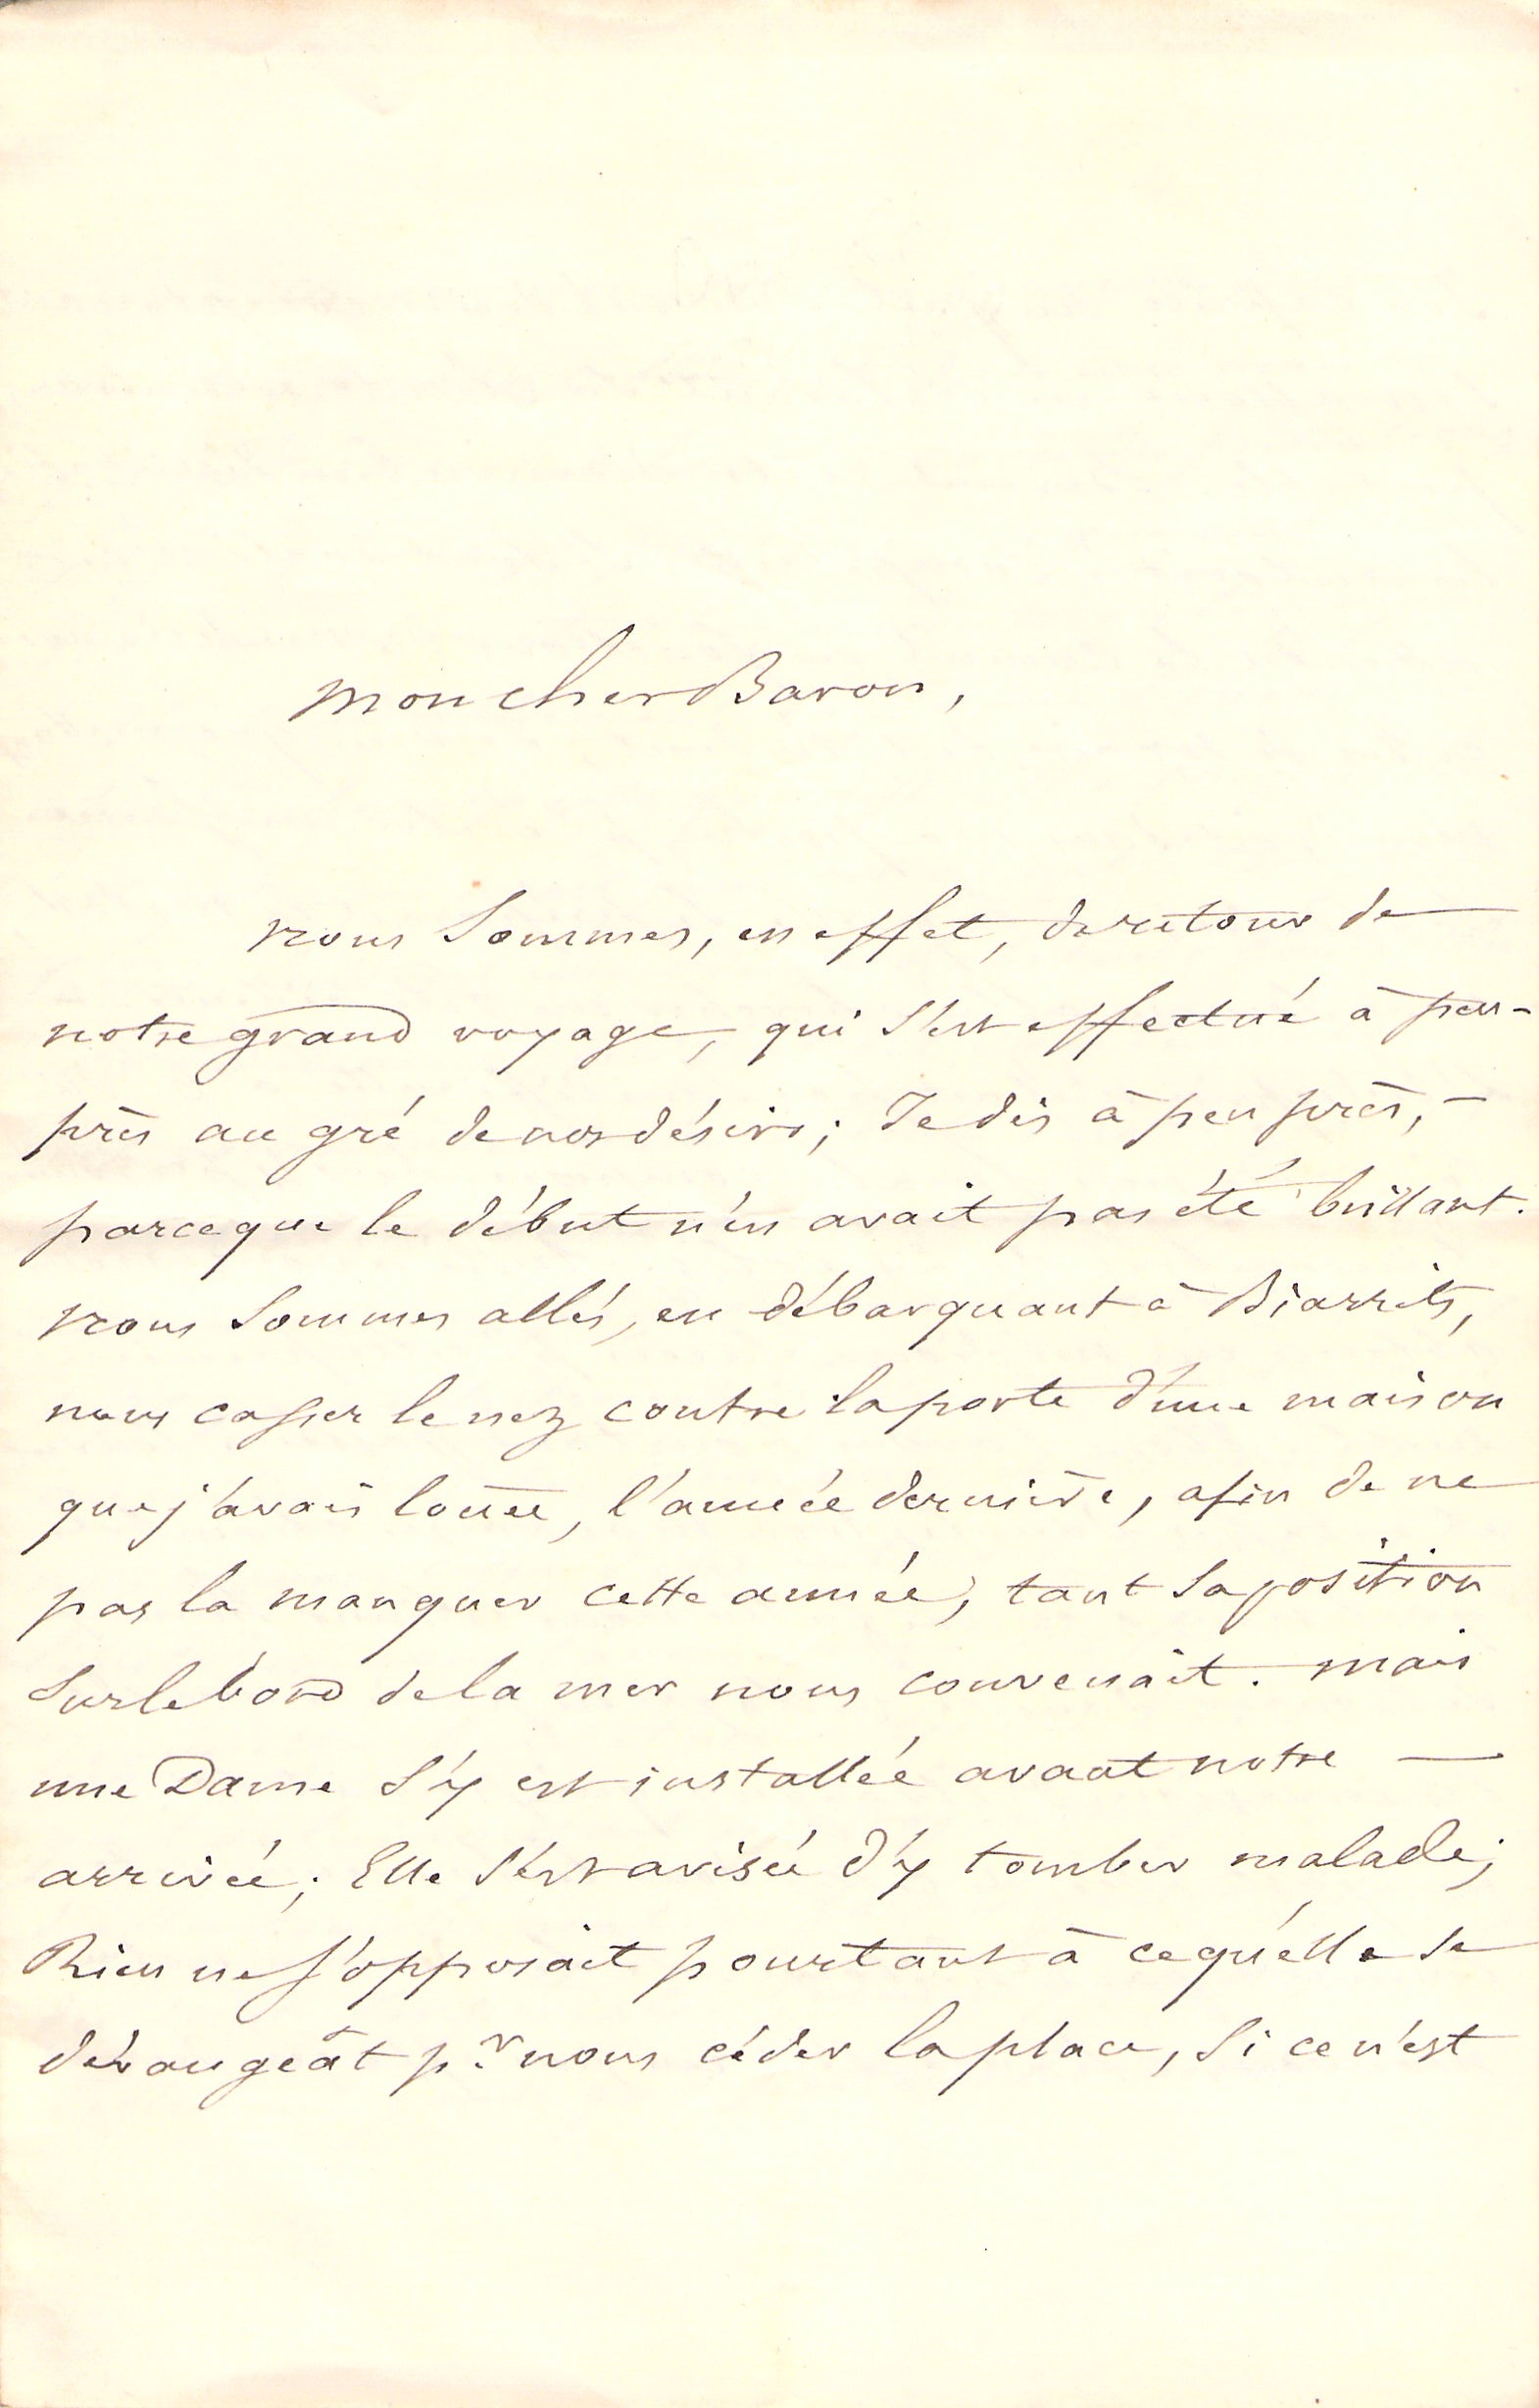 mon cher Baron,
nous sommes, en effet, de retour de
notre grand voyage, qui s'est effectué à peu-
près au gré de nos désirs; Je dis à peu près, -
parceque le début n'en avait pas été brillant.
nous sommes allés, en débarquant à Biarrits,
nous casser le nez contre la porte d'une maison
que j'avais louée, l'année dernière, afin de ne
pas la manquer cette année, tant sa position
sur le bord de la mer nous convenait. mais
une Dame s'y est installée avant notre —
arrivée; Elle s'est avisée d'y tomber malade;
Rien ne s'opposait pourtant à ce qu'elle se
dérangeât pr nous céder la place, si ce n'est